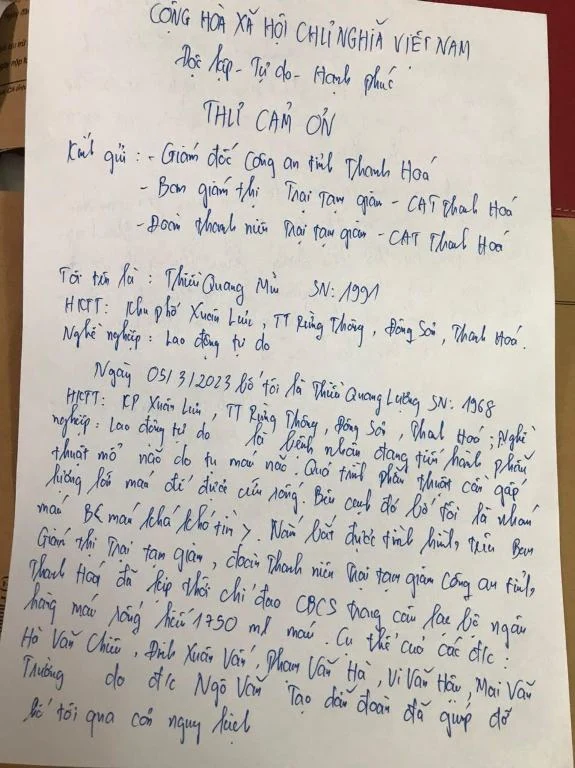 CỘNG HOÀ XÃ HỘI CHỦ NGHĨA VIỆT NAM
Độc lập - Tự do - Hạnh phúc
THƯ CẢM ƠN
Kính gửi : - Giám đốc Công an tỉnh Thanh Hoá
- Ban giám thị Trại tạm giam - CAT Thanh Hoá
- Đoàn thanh niên Trại tạm giam - CAT Thanh Hoá
Tôi tên là : Thiều Quang SN: 1991
HKTT: Khu phố Xuân Lưu, TT Rừng Thông, Đông Sơn, Thanh Hoá.
Nghề nghiệp : Lao động tự do
Ngày 05/3/2023 bố tôi là Thiều Quang Lượng SN: 1968
HKTT: KP Xuân Lưu, TT Rừng Thông, Đông Sơn, Thanh Hoá; Nghề
nghiệp: Lao động tự do là bệnh nhân đang tiến hành phẫu
thuật mổ não do tụ máu não. Quá trình phẫu thuật cần gấp
lượng lớn máu để được cứu sống. Bên cạnh đó bố tôi là nhóm
máu khá khó tìm. Nắm bắt được tình hình, trên Ban
Giám thị Trại tạm giam, đoàn thanh niên Trại tạm giam Công an tỉnh
Thanh Hoá đã kịp thời chỉ đạo CBCS trong câu lạc bộ ngân
hàng máu sống hiến 1750 ml máu. Cụ thể của các đ/c :
Hà Văn Chiến, Đinh Xuân Văn, Phạm Văn Hà, Vi Văn Hậu, Mai Văn
Trường do đ/c Ngô Văn Tạo dẫn đoàn đã giúp đỡ
bố tôi qua cơn nguy kịch